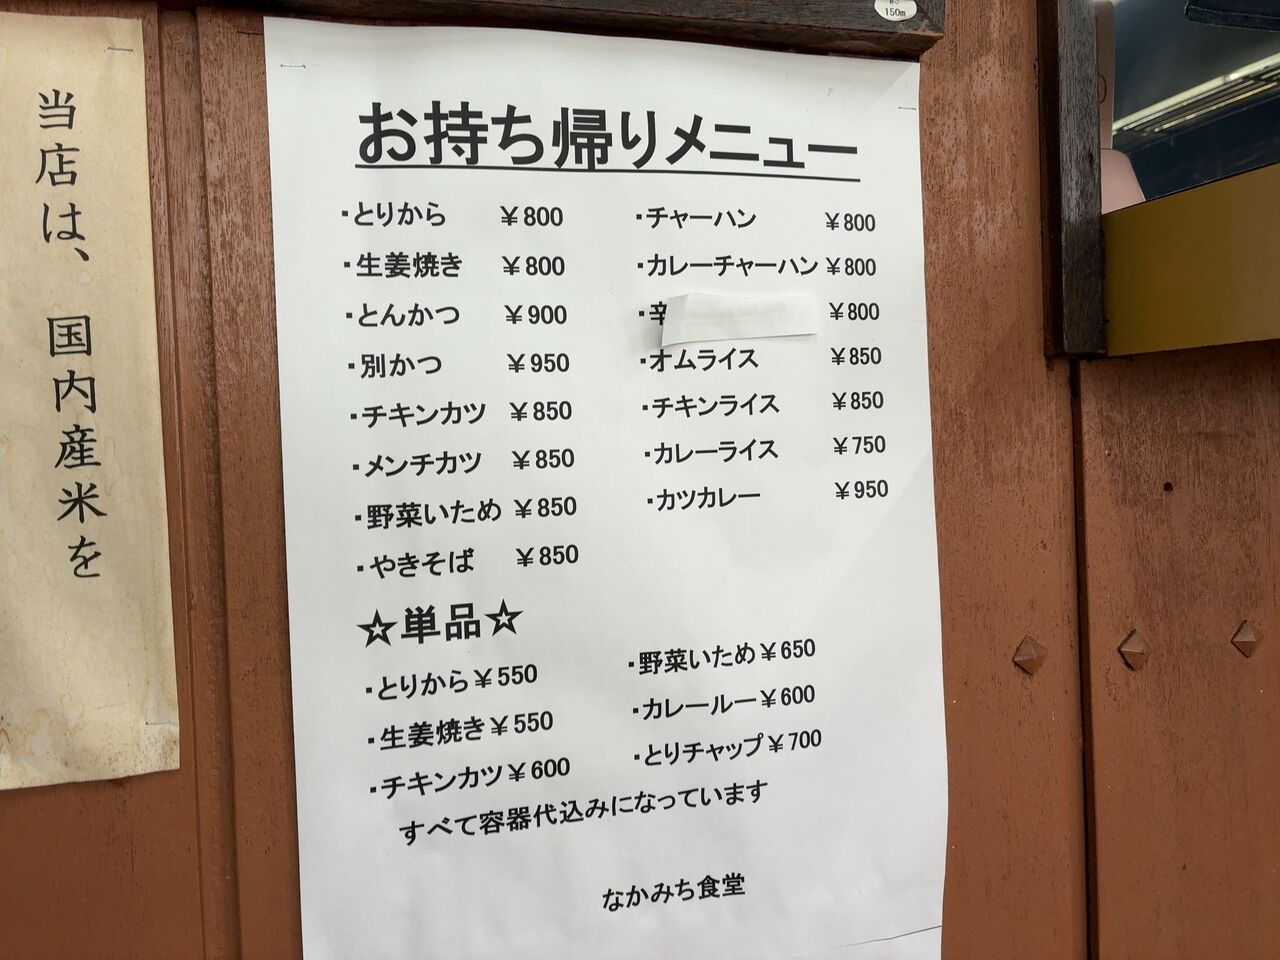 150m
当店は、国内産米を
お持ち帰りメニュー
・とりから ￥800
・生姜焼き ￥800
・とんかつ ￥900
・別かつ ￥950
・チキンカツ ￥850
・メンチカツ ￥850
・野菜いため ￥850
・やきそば ￥850
・チャーハン ￥800
・カレーチャーハン ￥800
・辛 ￥800
・オムライス ￥850
・チキンライス ￥850
・カレーライス ￥750
・カツカレー ￥950
☆単品☆
・とりから￥550
・生姜焼き￥550
・チキンカツ￥600
・野菜いため￥650
・カレールー￥600
・とりチャップ￥700
すべて容器代込みになっています
なかみち食堂